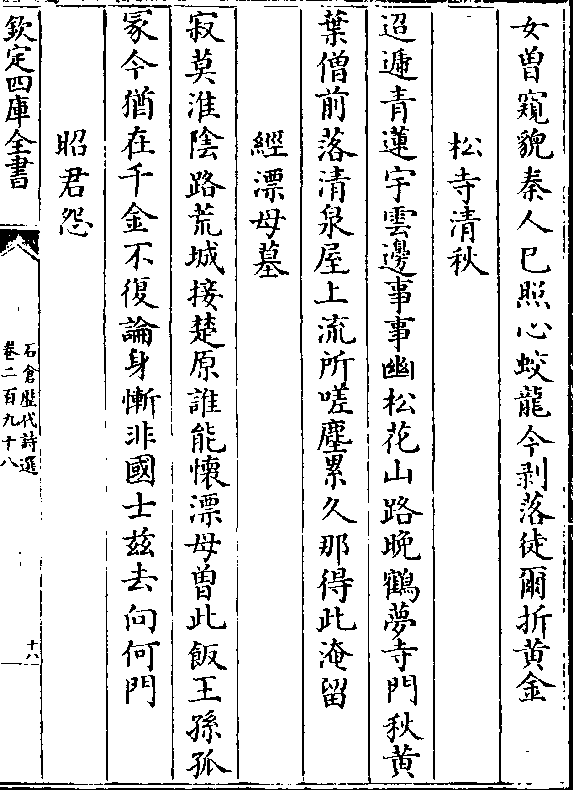 女曾窺貌秦人已照心蛟龍今剥落徒爾折黄金
松寺清秋
迢遞青蓮宇雲邊事事幽松花山路晩鶴夢寺門秋黄
葉僧前落清泉屋上流所嗟塵累久那得此淹留
經漂母墓
寂莫淮陰路荒城接楚原誰能懷漂母曾此飯王孫孤
冢今猶在千金不復論身慚非國士兹去向何門
昭君怨
欽定四庫全書
石倉歴代詩選
卷二百九十八
十八